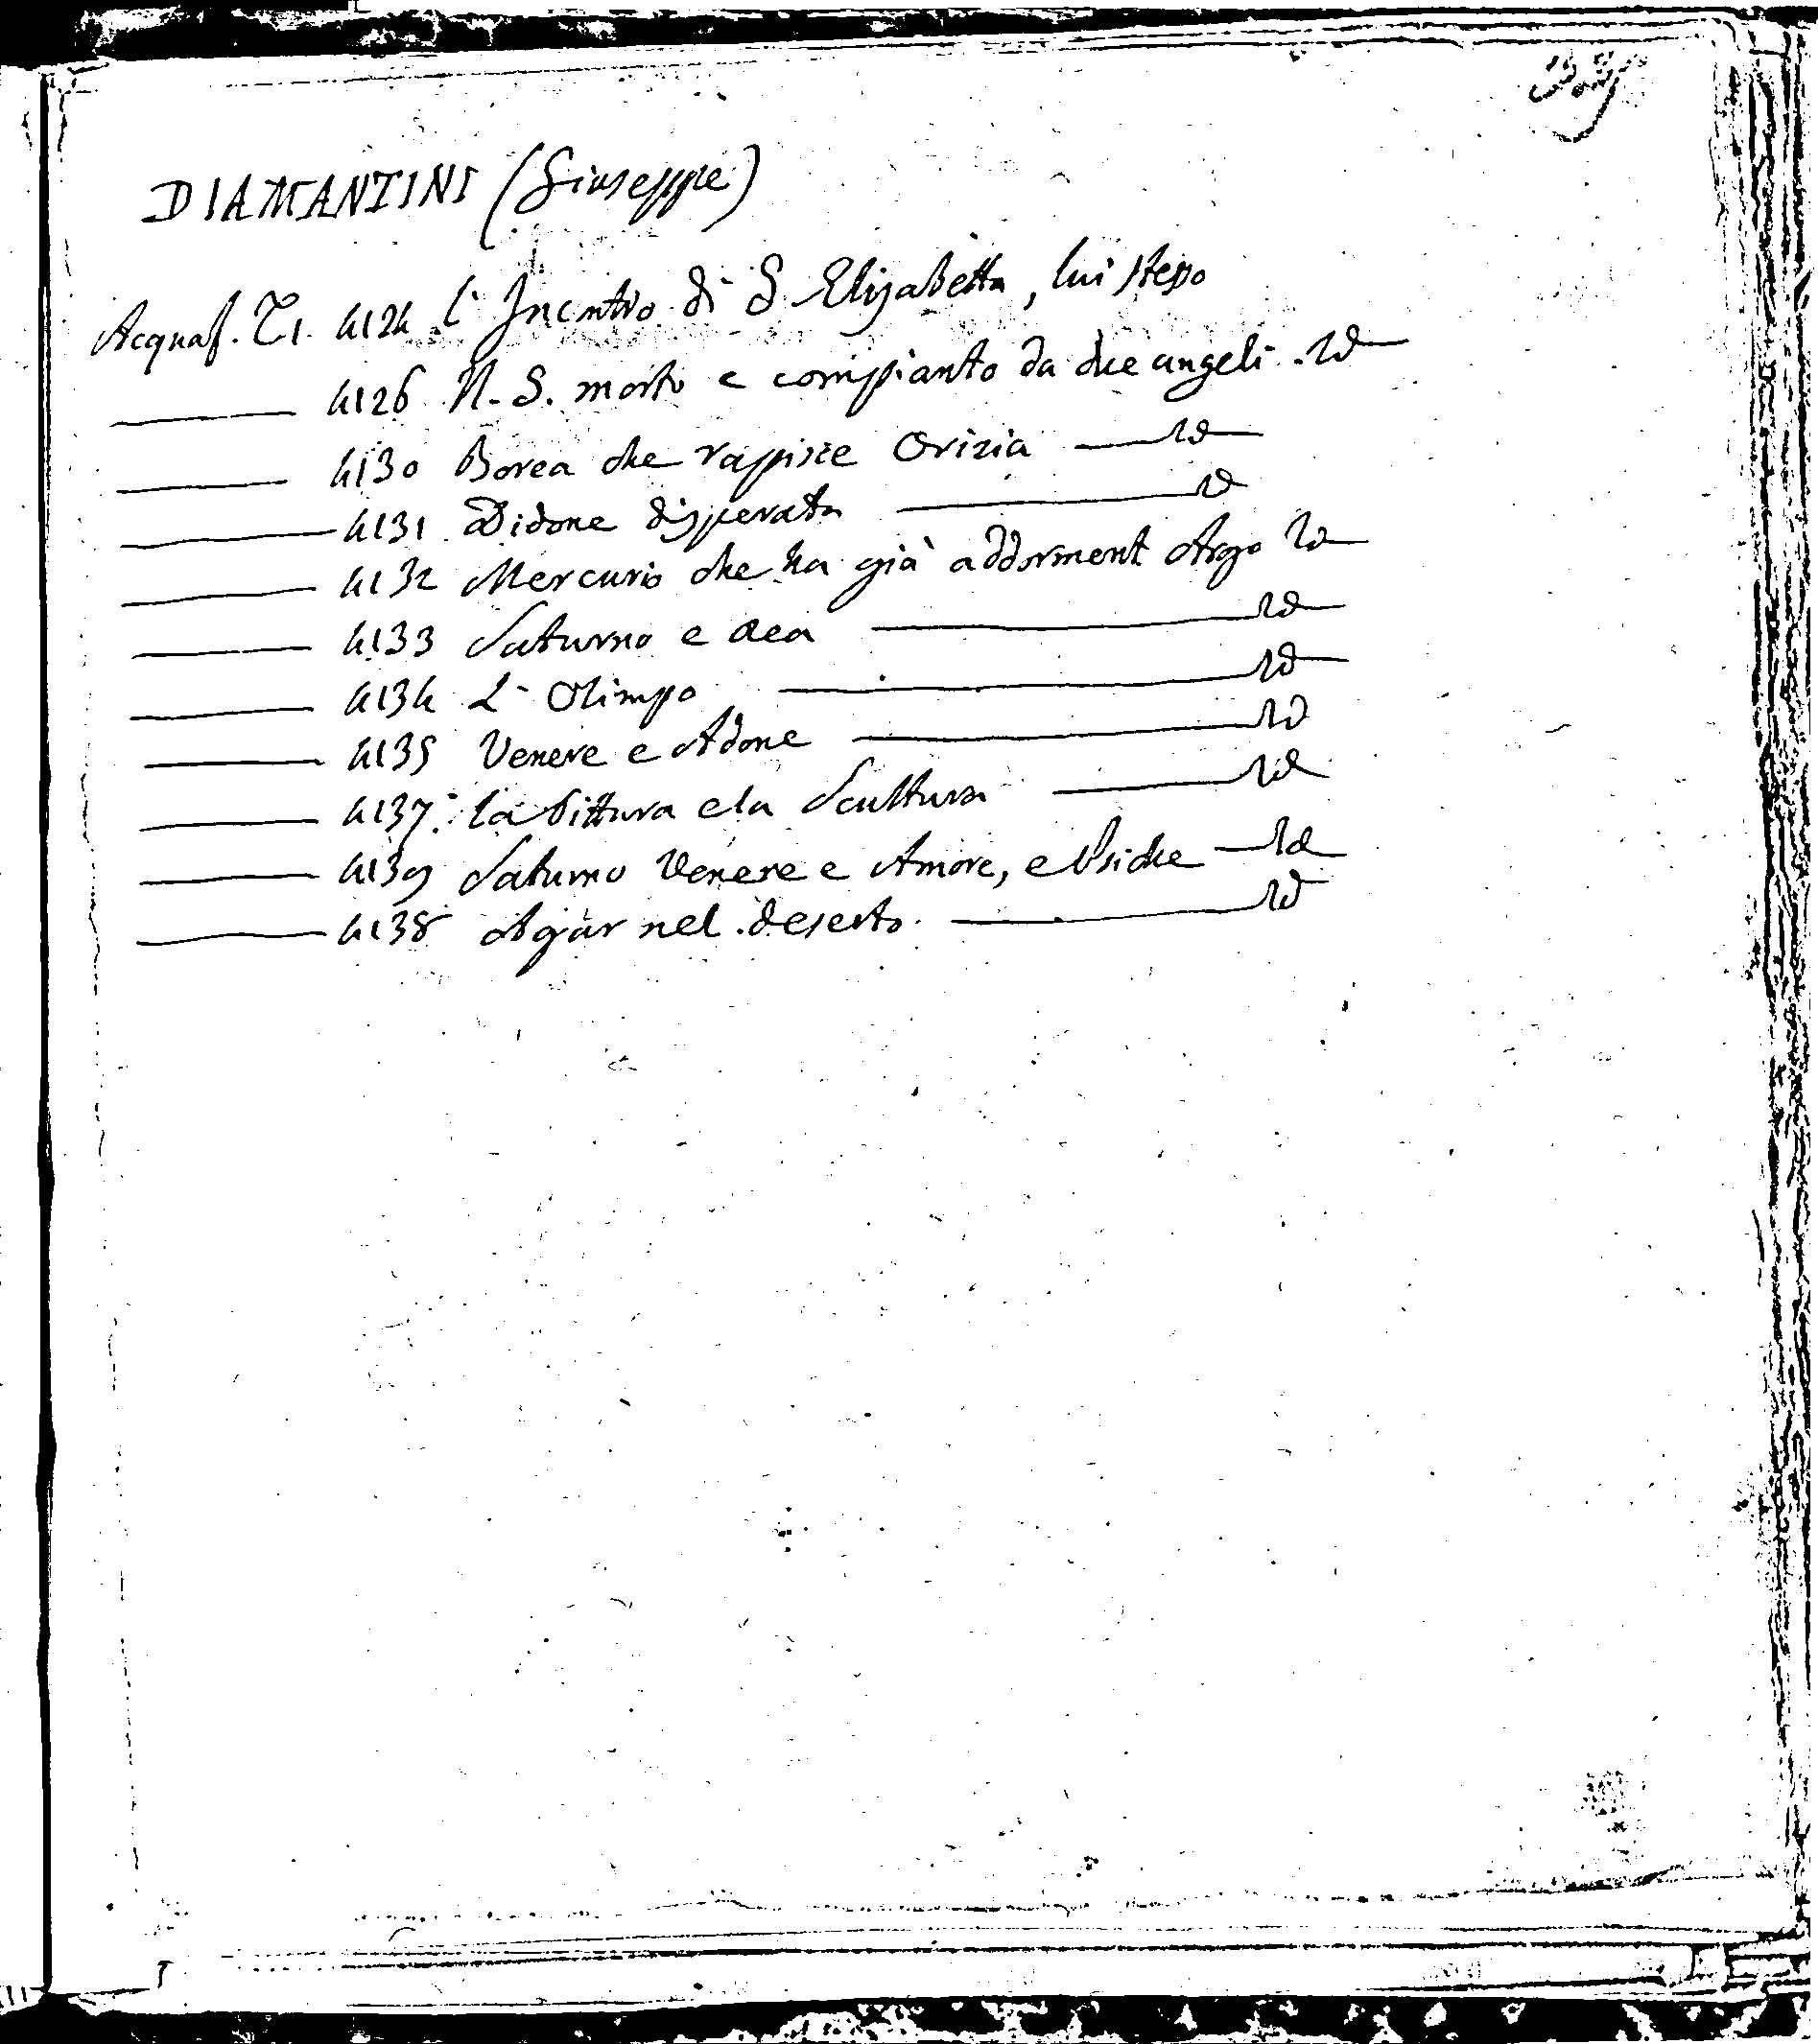 DIAMANTINI (Giuseppe)
Acquaf. T1. 4124 l'Incntro di S Elisabetta, lui stesso
4126 N. S. morto e compianto da due angeli. Id
4130 Borea che rapisce Orizia Id
4131 Didone disperata Id
4132 Mercurio che ha già addorment Argo Id
4133 Saturno e Rea Id
4134 L' Olimpo Id
4135 Venere e Adone Id
4137. la Pittura e la Scultura Id
4139 Saturno Venere e Amore, e Psiche Id
4138 Agar nel deserto. Id